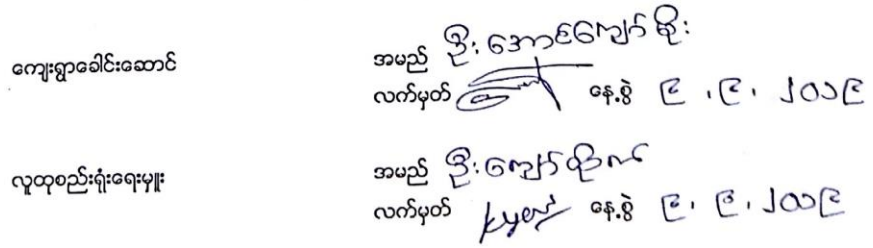 ကျေးရွာခေါင်းဆောင်
အမည် ဦးအောင်ကျော်စိုး
လက်မှတ် နေ့စွဲ ၉.၉.၂၀၁၉
လူထုစည်းရုံးရေးမှူး
အမည် ဦးကျော်ထိုက်
လက်မှတ် နေ့စွဲ ၉.၉.၂၀၁၉